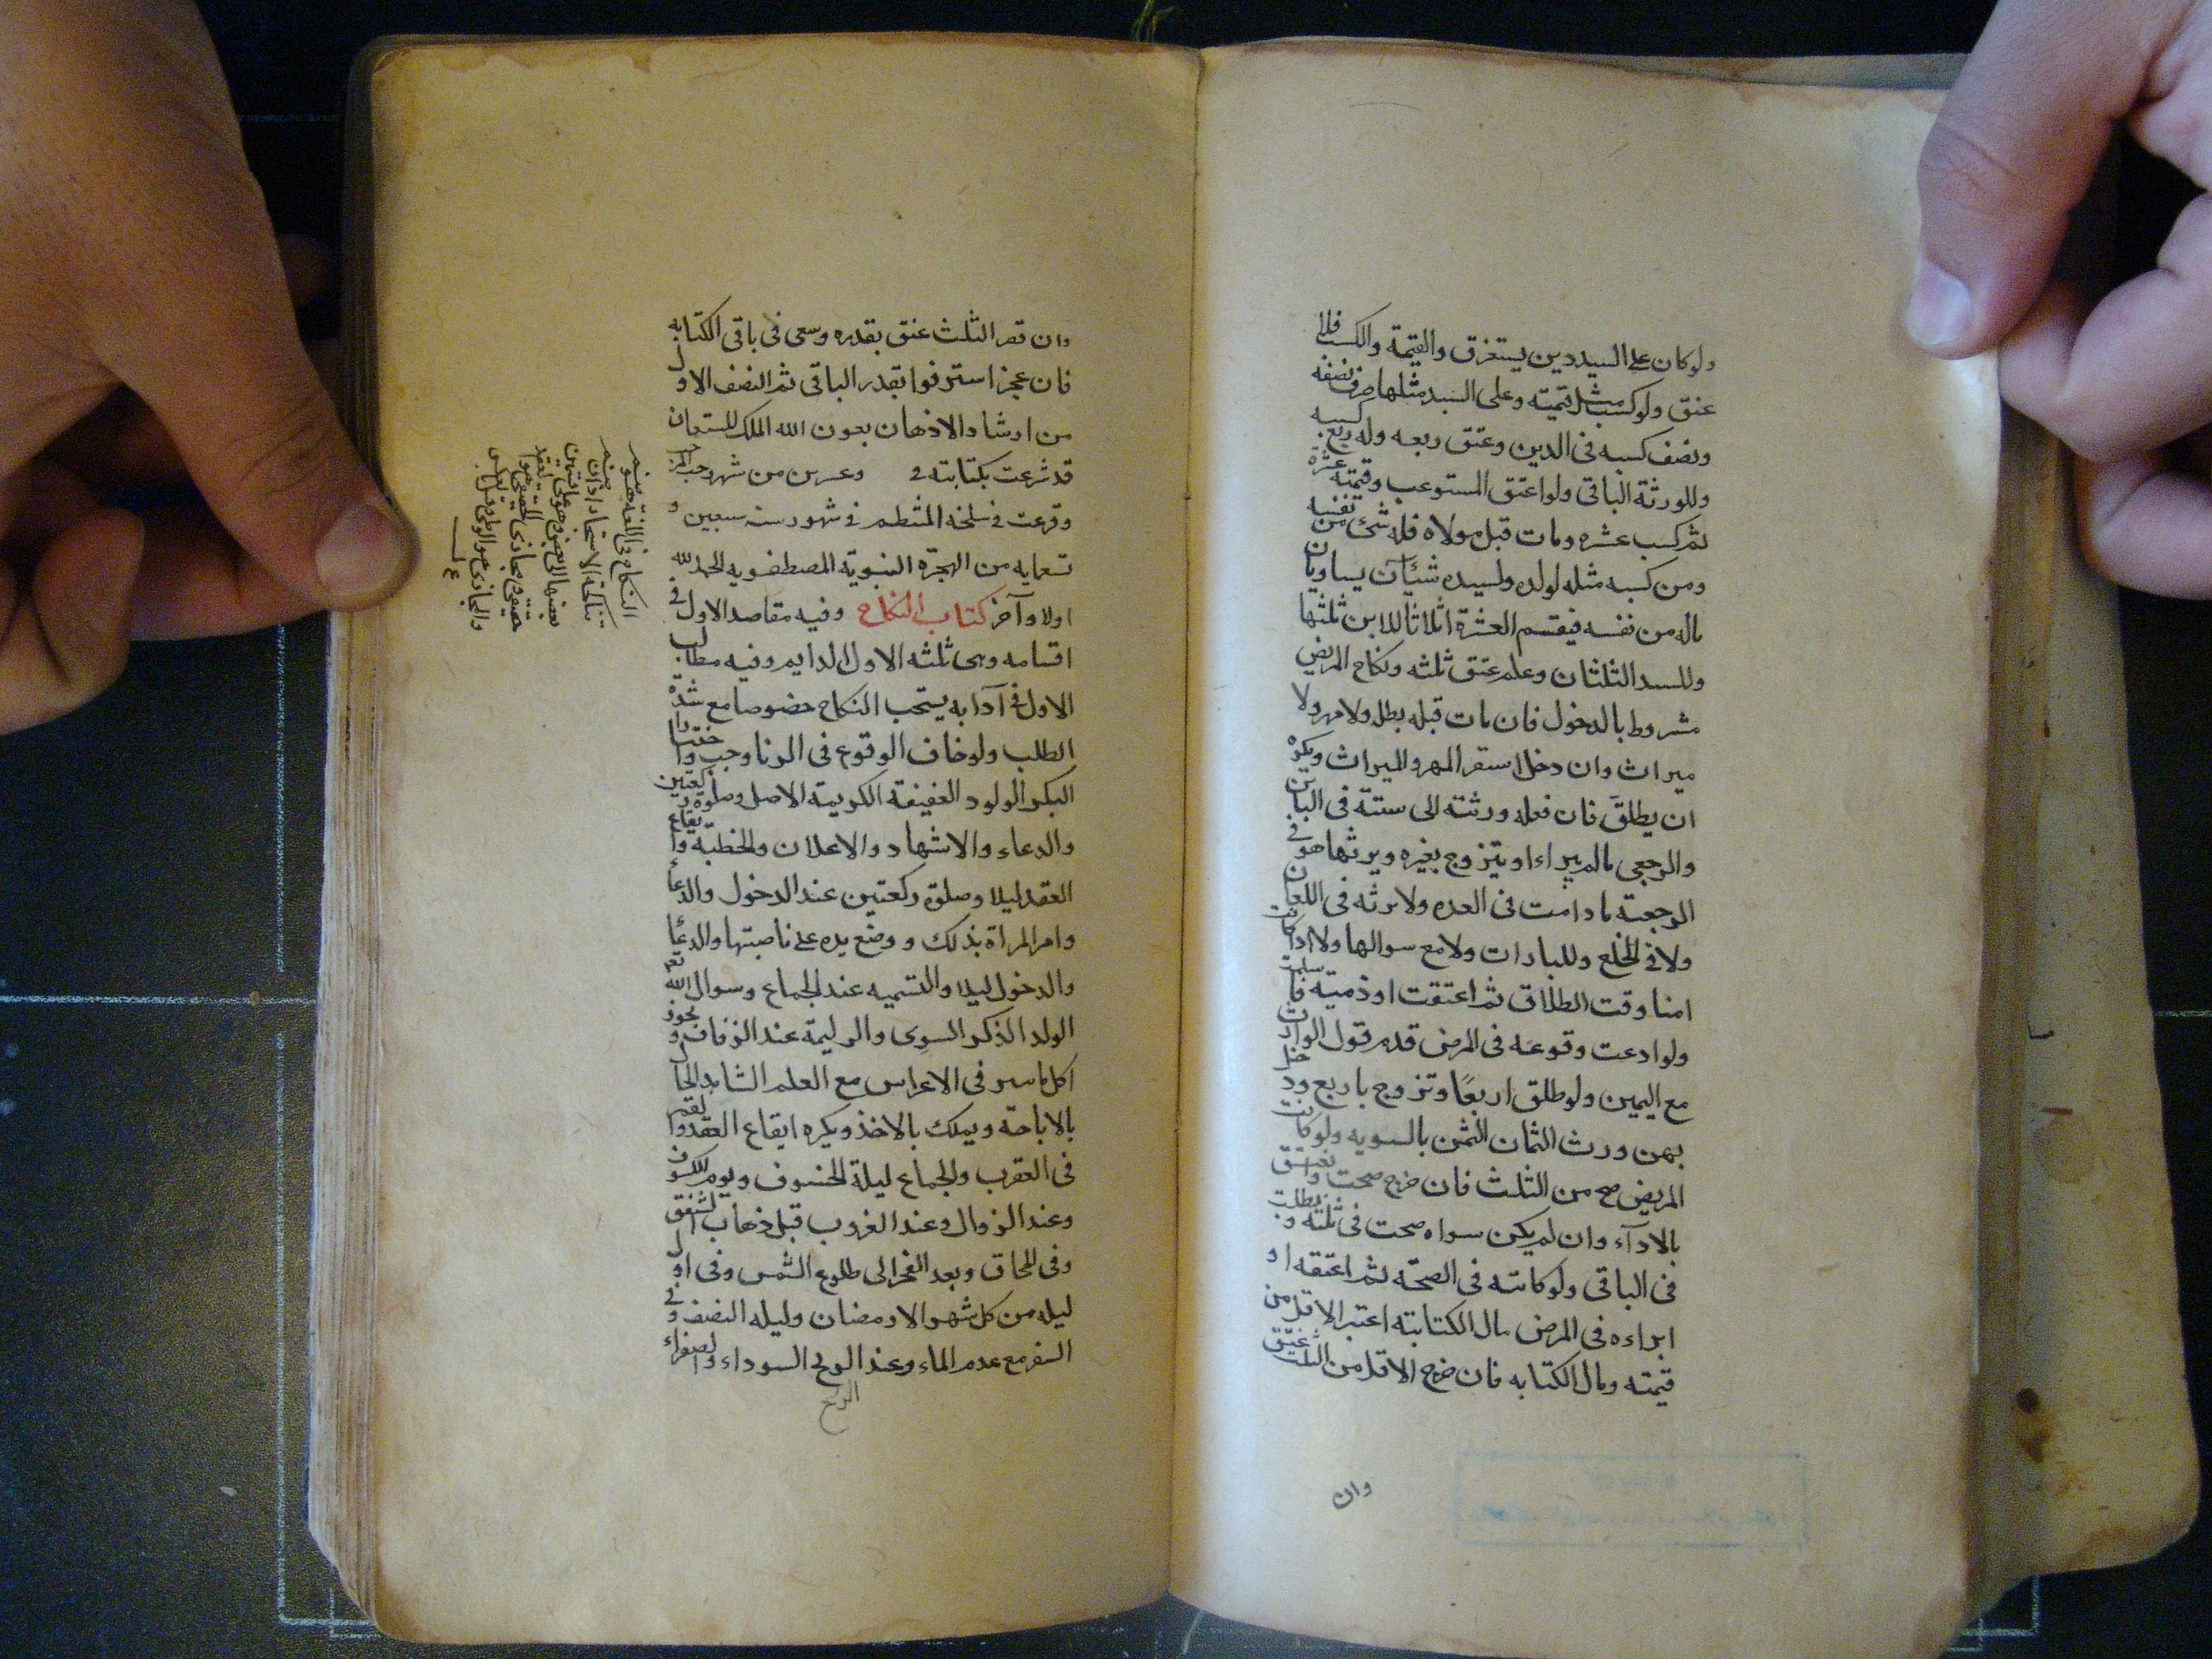 ولو كان على السيد دين يستغرق والقيمة والكسب فلا
عتق ولو كسب مثل قيمته وعلى السيد مثلها صرف نصفه
ونصف كسبه فى الدين وعتق ربعه وله ربع كسبه
وللورثة الباقى ولو اعتق المستوعب وقيمته عشرة
ثم كسب عشره ومات قبل مولاه فله شئ من نفسه
ومن كسبه مثله لولده ولسيده شيئان يساويان
ماله من نفسه فيقسم العشرة اثلاثا للابن ثلثها
وللسيد الثلثان وعلم عتق ثلثه ونكاح المريض
مشروط بالدخول فان مات قبله بطل ولا مهر ولا
ميراث وان دخل استقر المهر والميراث ويكره
ان يطلق فان فعله ورثته الى سنة فى الباين
والرجعى مالم يبراء او يتزوج بغيره ويرثها هو فى
الرجعية مادامت فى العده ولا ترثه فى اللعان
ولا فى الخلع والمبارات ولا مع سوالها ولا اذا كانت
امتا وقت الطلاق ثم اعتقت او ذمية فاسلمت
ولو ادعت وقوعه فى المرض قدم قول الوارث
مع اليمين ولو طلق اربعًا وتزوج باربع ودخل
بهن ورث الثمان الثمن بالسويه ولو كاتب
المريض صح من الثلث فان خرج صحت وانعتق
بالاداء وان لم يكن سواه صحت فى ثلثه وبطلت
فى الباقى ولو كاتبه فى الصحة ثم اعتقه او
ابراءه فى المرض مال الكتابته اعتبر الاقل من
قيمته ومال الكتابه فان خرج الاقل من الثلث عتق
وان
وان قصر الثلث عتق بقدره وسعى فى باقى الكتابه
فان عجز استرقوا بقدر الباقى ثم النصف الاول
من ارشاد الاذهان بعون الله الملك المستعان
قد شرعت بكتابته فى وعشرين من شهر رجب
وفرغت فى سلخه المنتظم فى شهور سنه سبعين و
تسعمايه من الهجرة النبوية المصطفويه الحمد لله
اولا وآخر كتاب النكاح وفيه مقاصد الاول فى
اقسامه وهى ثلثه الاول الدايم وفيه مطالب
الاول فى آدابه يستحب النكاح خصوصا مع شدة
الطلب ولو خاف الوقوع فى الزنا وجب واختيار
البكر الولود العفيفة الكريمة الاصل وصلوة ركعتين
والدعاء والاشهاد والاعلان والخطبة وايقاع
العقد ليلا وصلوة ركعتين عند الدخول والدعا
وامر المراة بذلك و وضع يده على ناصيتها والدعا
والدخول ليلا والتسميه عند الجماع وسوال الله تعم
الولد الذكر السوى والوليمة عند الزفاف ويجوز
اكل ما ينثر فى الاعراس مع العلم الشاهد الحال
بالاباحة ويملك بالاخذ ويكره ايقاع العقد والقمر
فى العقرب والجماع ليلة الخسوف ويوم الكسوف
وعند الزوال وعند الغروب قبل ذهاب الشفق
وفى المحاق وبعد الفجر الى طلوع الشمس وفى اول
ليله من كل شهر الا رمضان وليله النصف وفى
السفر مع عدم الماء وعند الريح السوداء والصفراء
الريح
النكاح فى اللغة هو